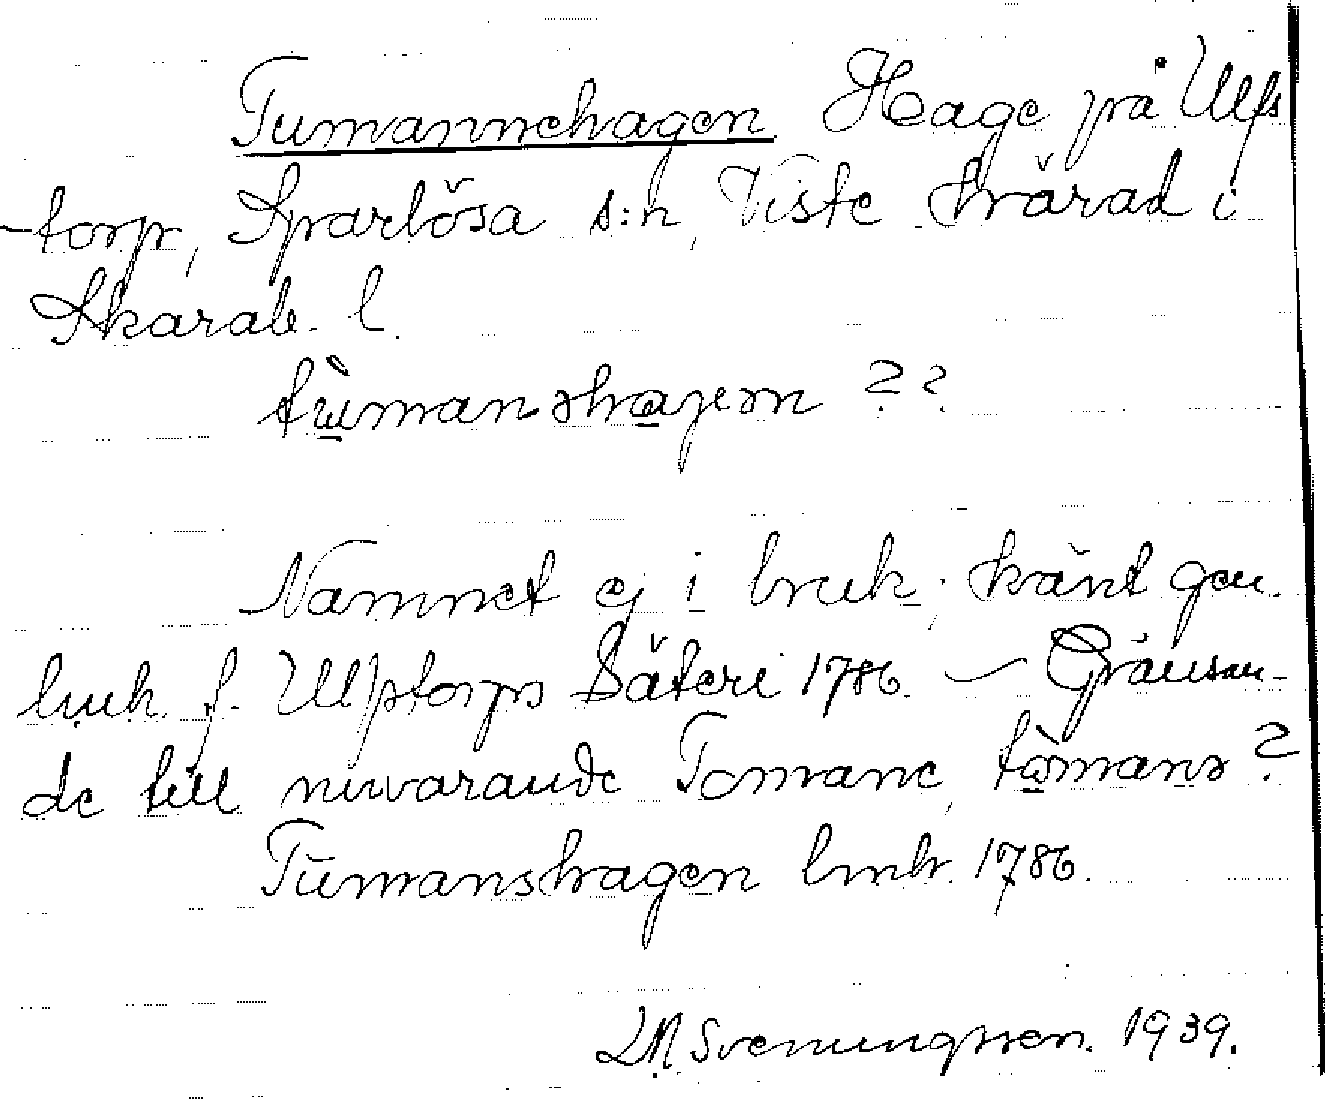 Tumannehagen Hage på Ulfs
-torp, Sparlösa s:n, Viste härad i
Skarab. l.
tùmanshagen ??
Namnet ej i bruk; känt gen.
lmh. f. Ulfstorps Säteri 1786. – Gränsan-
de till nuvarande Tomane, tòmanə ?
Tumanshagen lmh. 1786.
Svenungsson. 1939.